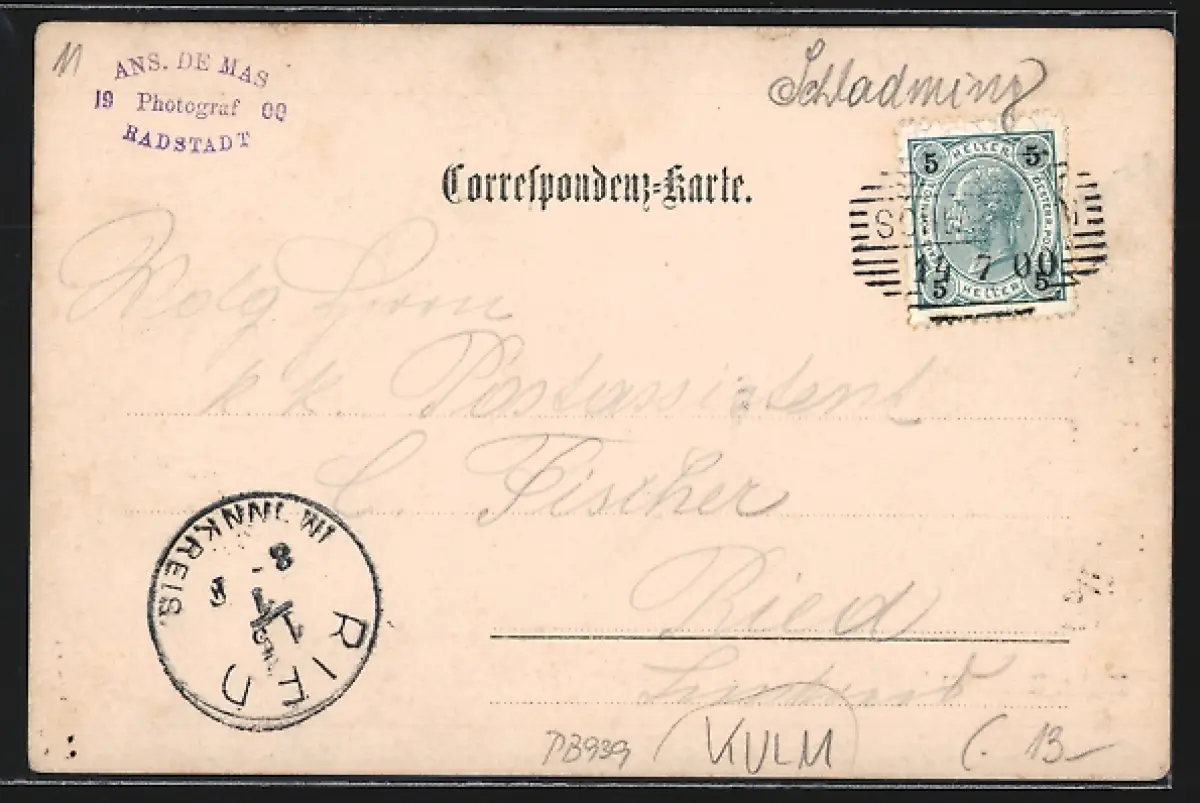 11
ANS. DE MAS
19 Photograf 00
RADSTADT
Schladming
Correſpondenz=Karte.
5 HELLER 5
5 HELLER 5
14 7 00
Wolg Herrn
k. k. Postassistent
C. Fischer
Ried
RIED
IM INNKREIS.
PB939
KULM
13